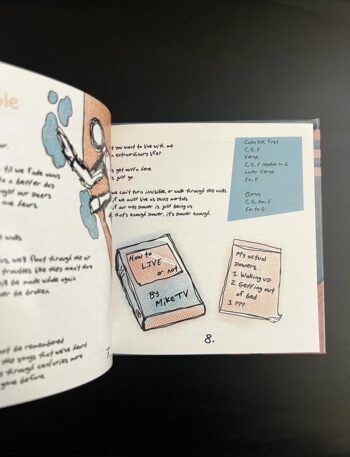 ble
or.
til we fade away
to a better day
ought our peers
are fears.
walls.
us, we'll float through the air
troubles like they aren't there
ll be made whole again
er be broken
not be remembered
the songs that we've heard
through centuries more
gone before
t you want to live with me
n extraordinary life?
s get outta here.
s just go.
we can't turn invisible, or walk through the walls
if we must live as mere mortals
if our one power is just being us
that's enough power, it's power enough.
Capo 5th fret
C, G, F
Verse
C, G, F resolve on G
Later Verse
Em, F
Chorus
C, G, Am, F
Em to G
How to
LIVE
or not
By
MikeTV
My actual
powers...
1. Waking up
2. Getting out
of bed
3. ???
8.